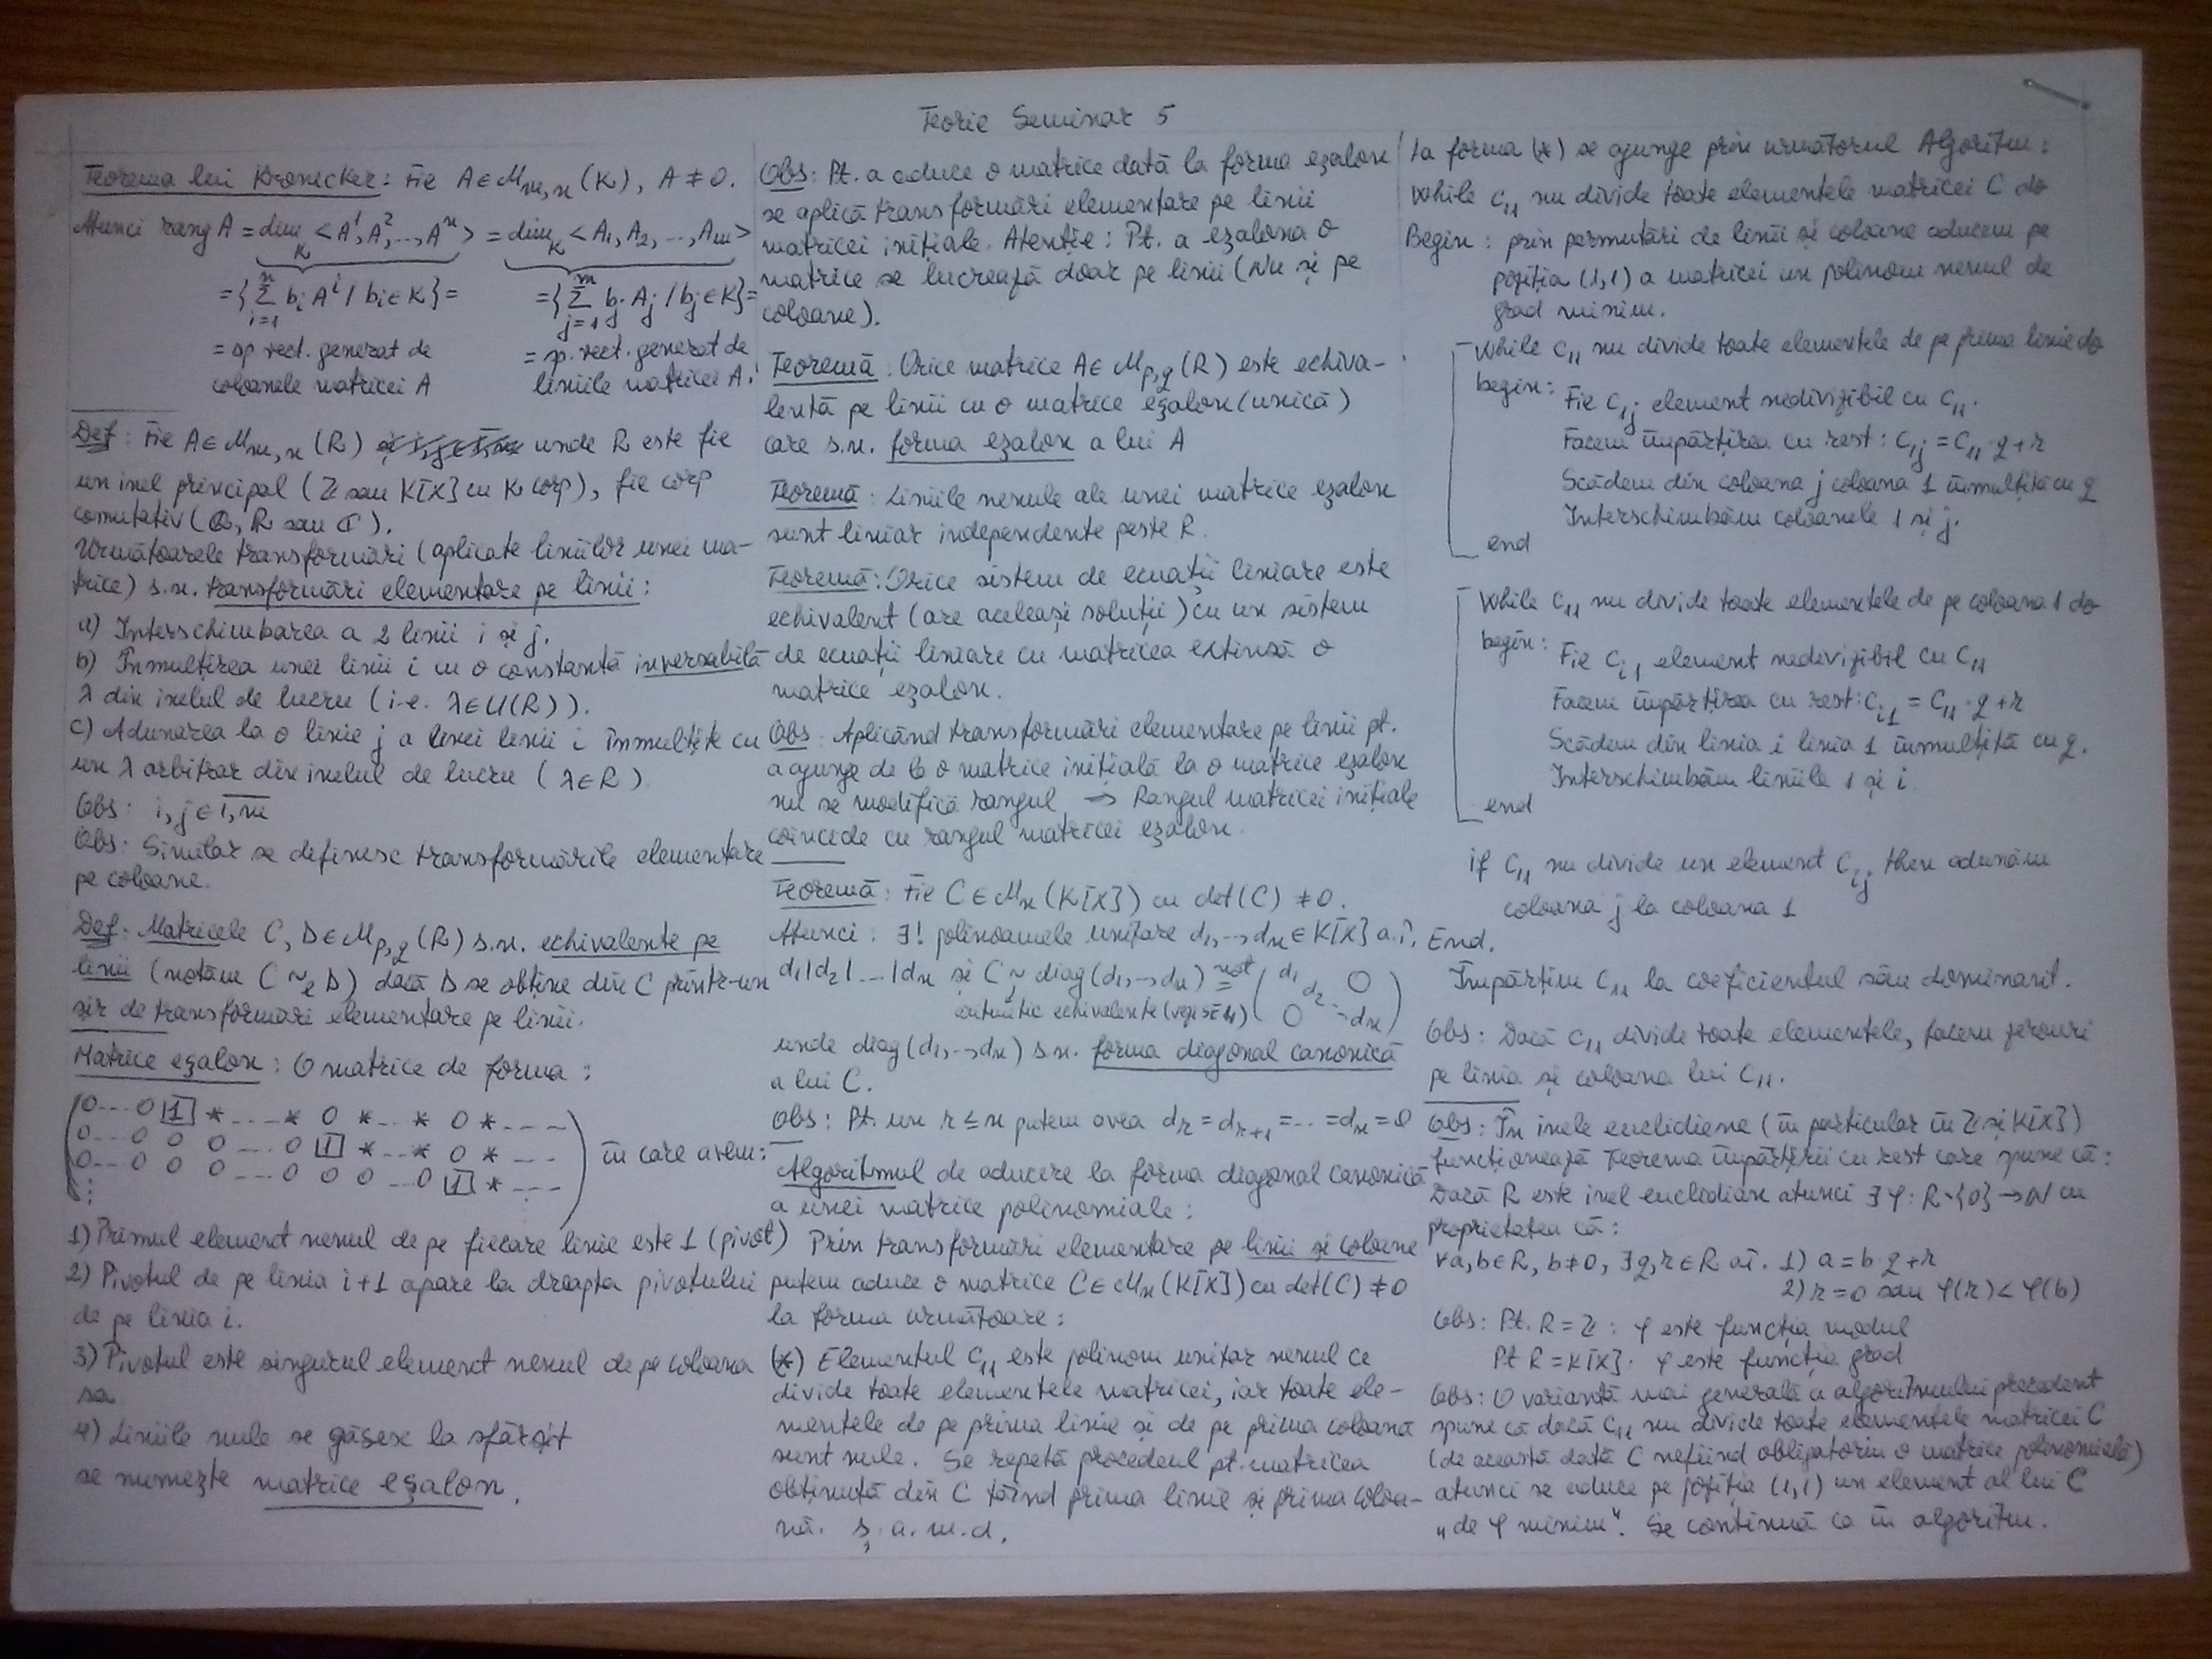 Teorie Seminar 5
Teorema lui Kronecker: Fie A∈M_{m,n}(K), A≠0.
Atunci rang A = dim_K <A¹, A², ..., Aⁿ> = dim_K <A₁, A₂, ..., A_m>
={∑_{i=1}^{n} b_i A^i / b_i∈K}= ={∑_{j=1}^{m} b_j A_j / b_j∈K}=
= sp. vect. generat de = sp. vect. generat de
coloanele matricei A liniile matricei A.
Def: Fie A∈M_{m,n}(R) unde R este fie
un inel principal (ℤ sau K[X] cu K corp), fie corp
comutativ (ℚ, ℝ sau ℂ).
Următoarele transformări (aplicate liniilor unei ma-
trice) s.n. transformări elementare pe linii:
a) Interschimbarea a 2 linii i și j.
b) Înmulțirea unei linii i cu o constantă inversabilă
λ din inelul de lucru (i.e. λ∈U(R)).
c) Adunarea la o linie j a unei linii i înmulțite cu
un λ arbitrar din inelul de lucru (λ∈R).
Obs: i, j ∈ 1,m
Obs: Similar se definesc transformările elementare
pe coloane.
Def: Matricele C, D∈M_{p,q}(R) s.n. echivalente pe
linii (notăm C ~_l D) dacă D se obține din C printr-un
șir de transformări elementare pe linii.
Matrice eșalon: O matrice de forma:
0 -- 0 1 * --- * 0 * -- * 0 * ---
0 -- 0 0 0 --- 0 1 * -- * 0 * --- în care avem:
0 -- 0 0 0 --- 0 0 0 -- 0 1 * ---
1) Primul element nenul de pe fiecare linie este 1 (pivot)
2) Pivotul de pe linia i+1 apare la dreapta pivotului
de pe linia i.
3) Pivotul este singurul element nenul de pe coloana
sa.
4) Liniile nule se găsesc la sfârșit
se numește matrice eșalon.
Obs: Pt. a aduce o matrice dată la forma eșalon
se aplică transformări elementare pe linii
matricei inițiale. Atenție: Pt. a eșalona o
matrice se lucrează doar pe linii (Nu și pe
coloane).
Teoremă: Orice matrice A∈M_{p,q}(R) este echiva-
lentă pe linii cu o matrice eșalon (unică)
care s.n. forma eșalon a lui A
Teoremă: Liniile nenule ale unei matrice eșalon
sunt liniar independente peste R.
Teoremă: Orice sistem de ecuații liniare este
echivalent (are aceleași soluții) cu un sistem
de ecuații liniare cu matricea extinsă o
matrice eșalon.
Obs: Aplicând transformări elementare pe linii pt.
a ajunge de la o matrice inițială la o matrice eșalon
nu se modifică rangul → Rangul matricei inițiale
coincide cu rangul matricei eșalon.
Teoremă: Fie C∈M_n(K[X]) cu det(C) ≠ 0.
Atunci: ∃! polinoamele unitare d₁, → d_n ∈ K[X] a.î.
d₁|d₂|...|d_n și C ~ diag(d₁, → d_n) not= (d₁ d₂ ⋱ d_n 0 0)
aritmetic echivalente (vezi S4)
unde diag(d₁, → d_n) s.n. forma diagonal canonică
a lui C.
Obs: Pt. un r ≤ n putem avea d_r = d_{r+1} = ... = d_n = 0
Algoritmul de aducere la forma diagonal canonică
a unei matrice polinomiale:
Prin transformări elementare pe linii și coloane
putem aduce o matrice C∈M_n(K[X]) cu det(C) ≠ 0
la forma următoare:
(*) Elementul c₁₁ este polinom unitar nenul ce
divide toate elementele matricei, iar toate ele-
mentele de pe prima linie și de pe prima coloană
sunt nule. Se repetă procedeul pt. matricea
obținută din C tăind prima linie și prima coloa-
nă. ș.a.m.d.
La forma (*) se ajunge prin următorul Algoritm:
While c₁₁ nu divide toate elementele matricei C do
Begin: prin permutări de linii și coloane aducem pe
poziția (1,1) a matricei un polinom nenul de
grad minim.
While c₁₁ nu divide toate elementele de pe prima linie do
begin: Fie C_{1j} element nedivizibil cu C₁₁.
Facem împărțirea cu rest: C_{1j} = C₁₁·q+r
Scădem din coloana j coloana 1 înmulțită cu q
Interschimbăm coloanele 1 și j.
end
While c₁₁ nu divide toate elementele de pe coloana 1 do
begin: Fie C_{i1} element nedivizibil cu C₁₁
Facem împărțirea cu rest: C_{i1} = C₁₁·q+r
Scădem din linia i linia 1 înmulțită cu q.
Interschimbăm liniile 1 și i
end
if C₁₁ nu divide un element C_{ij} then adunăm
coloana j la coloana 1
End.
Împărțim C₁₁ la coeficientul său dominant.
Obs: Dacă C₁₁ divide toate elementele, facem zerouri
pe linia și coloana lui C₁₁.
Obs: În inele euclidiene (în particular în ℤ și K[X])
funcționează Teorema împărțirii cu rest care spune că:
Dacă R este inel euclidian atunci ∃ φ: R∖{0} → ℕ cu
proprietatea că:
∀a,b∈R, b≠0, ∃q,r∈R aî. 1) a=b·q+r
2) r=0 sau φ(r)<φ(b)
Obs: Pt. R=ℤ: φ este funcția modul
Pt R=K[X]: φ este funcția grad
Obs: O variantă mai generală a algoritmului precedent
spune că dacă C₁₁ nu divide toate elementele matricei C
(de această dată C nefiind obligatoriu o matrice polinomială)
atunci se aduce pe poziția (1,1) un element al lui C
„de φ minim". Se continuă ca în algoritm.